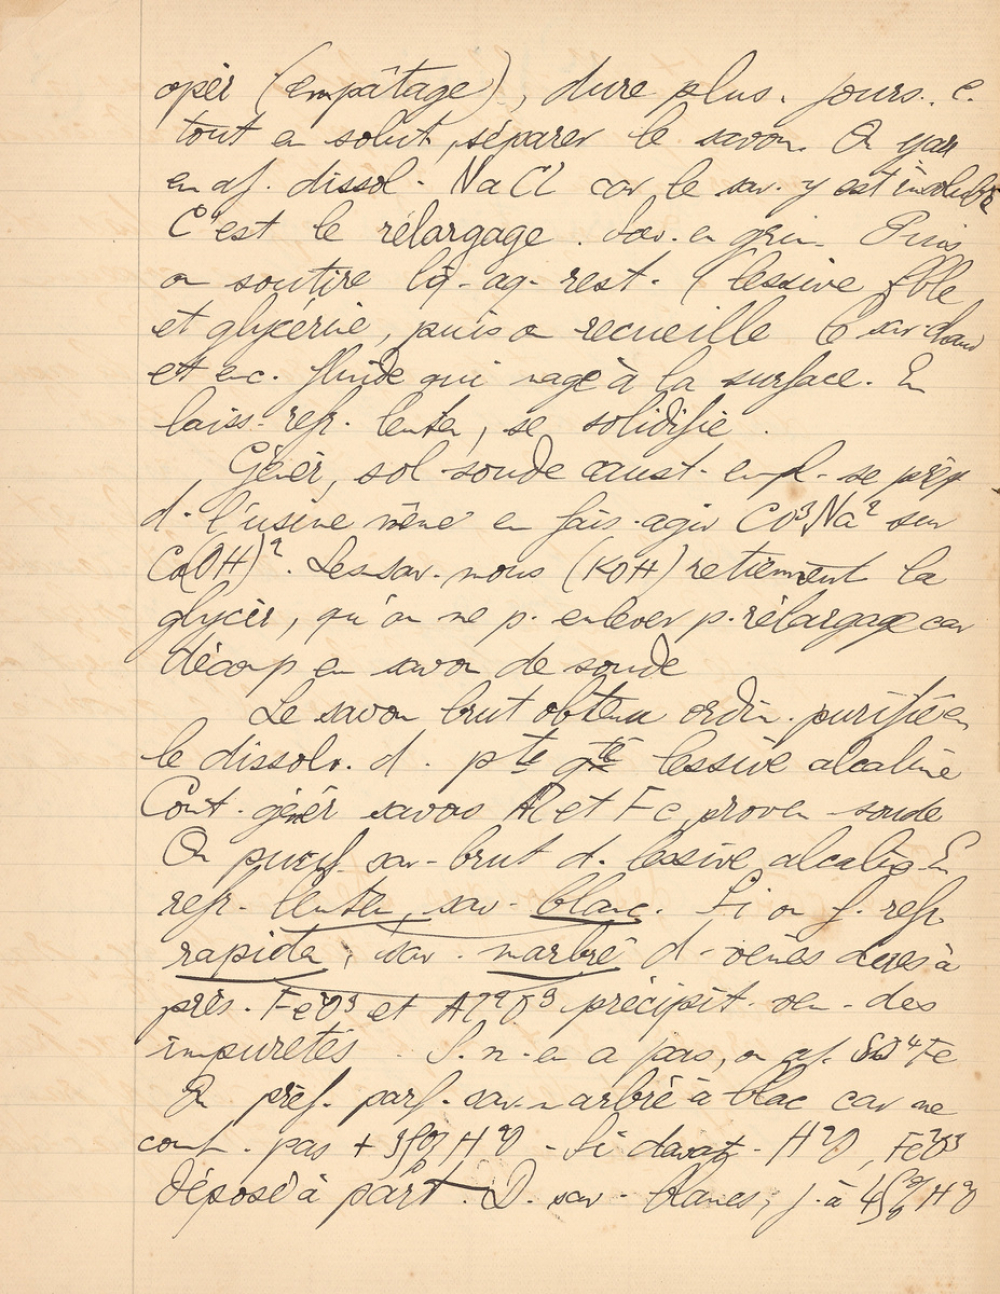 opér (empâtage), dure plus. jours. C.
tout en solut, séparer le savon. On
en aj. dissol. NaCl car le sav. y est insoluble
C'est le rélargage. Sav. en grin. Puis
on soutire liq. aq. rest. (lessive fble
et glycérine, puis on recueille le sav. chau
et enc. fluide qui nage à la surface. En
laiss. refr. lentem, se solidifie.
Génér, sol soude caust. empl. se prép
d. l'usine même en fais. agir CO³Na² sur
Ca(OH)². Les sav. mous (KOH) retiennent la
glycér, qu'on ne p. enlever p. rélargage car
décomp en savon de soude
Le savon brut obtenu ordin. purifié en
le dissolv. d. pte qté lessive alcaline
Cont. génér savons Al et Fe, proven soude
On purif. sav. brut d. lessive alcaline. En
refr. lentem, sav. blanc. Si on f. refr.
rapidem, sav. marbré d. veines dues à
prés. Fe²O³ et Al²O³ précipit. ven. des
impuretés. S. n. en a pas, on aj. SO⁴Fe
On préf. parf. sav. marbré à blac car ne
cont. pas + 35% H²O. Si davant. H²O, Fe²O³
déposé à part. D. sav. blancs, j. à 45% H²O